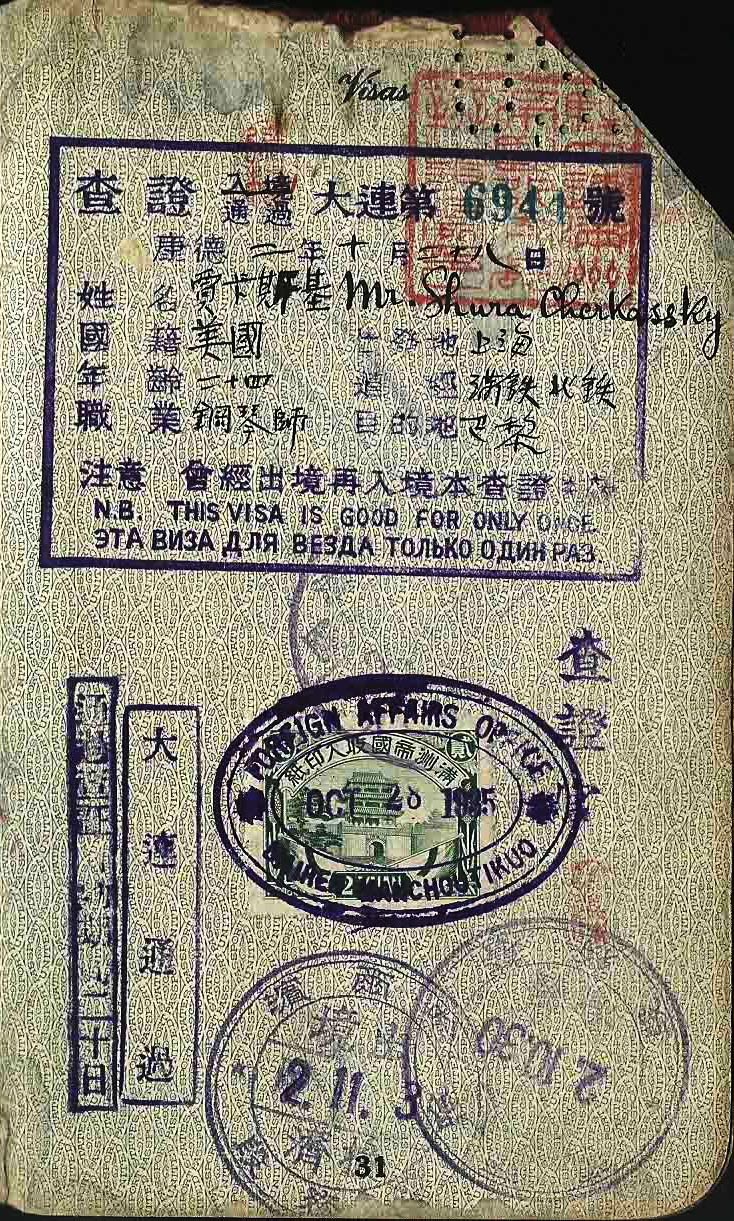 Visas
查證 入境 通過 大連第 6941 號
康德 二 年 十 月 二十八 日
姓名 賈卡斯基 Mr. Shura Cherkassky
國籍 美國 出發地 上海
年齡 二十四 道經 滿鐵北鐵
職業 鋼琴師 目的地 巴黎
注意 曾經出境再入境本查證
N.B. THIS VISA IS GOOD FOR ONLY ONCE
ЭТА ВИЗА ДЛЯ ВЕЗДА ТОЛЬКО ОДИН РАЗ
查證
大連通過
十日
FOREIGN AFFAIRS OFFICE
滿洲帝國收入印紙
OCT 28 1935
MANCHOUTIKUO
濱爾
境
2.11.
濟
2.10.30
31